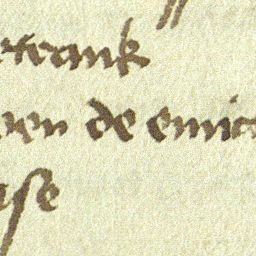 etrank
en de emic
se